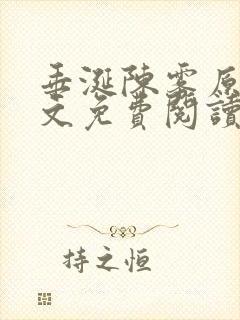 垂涎陳霧原
文免費閱讀
持之恒